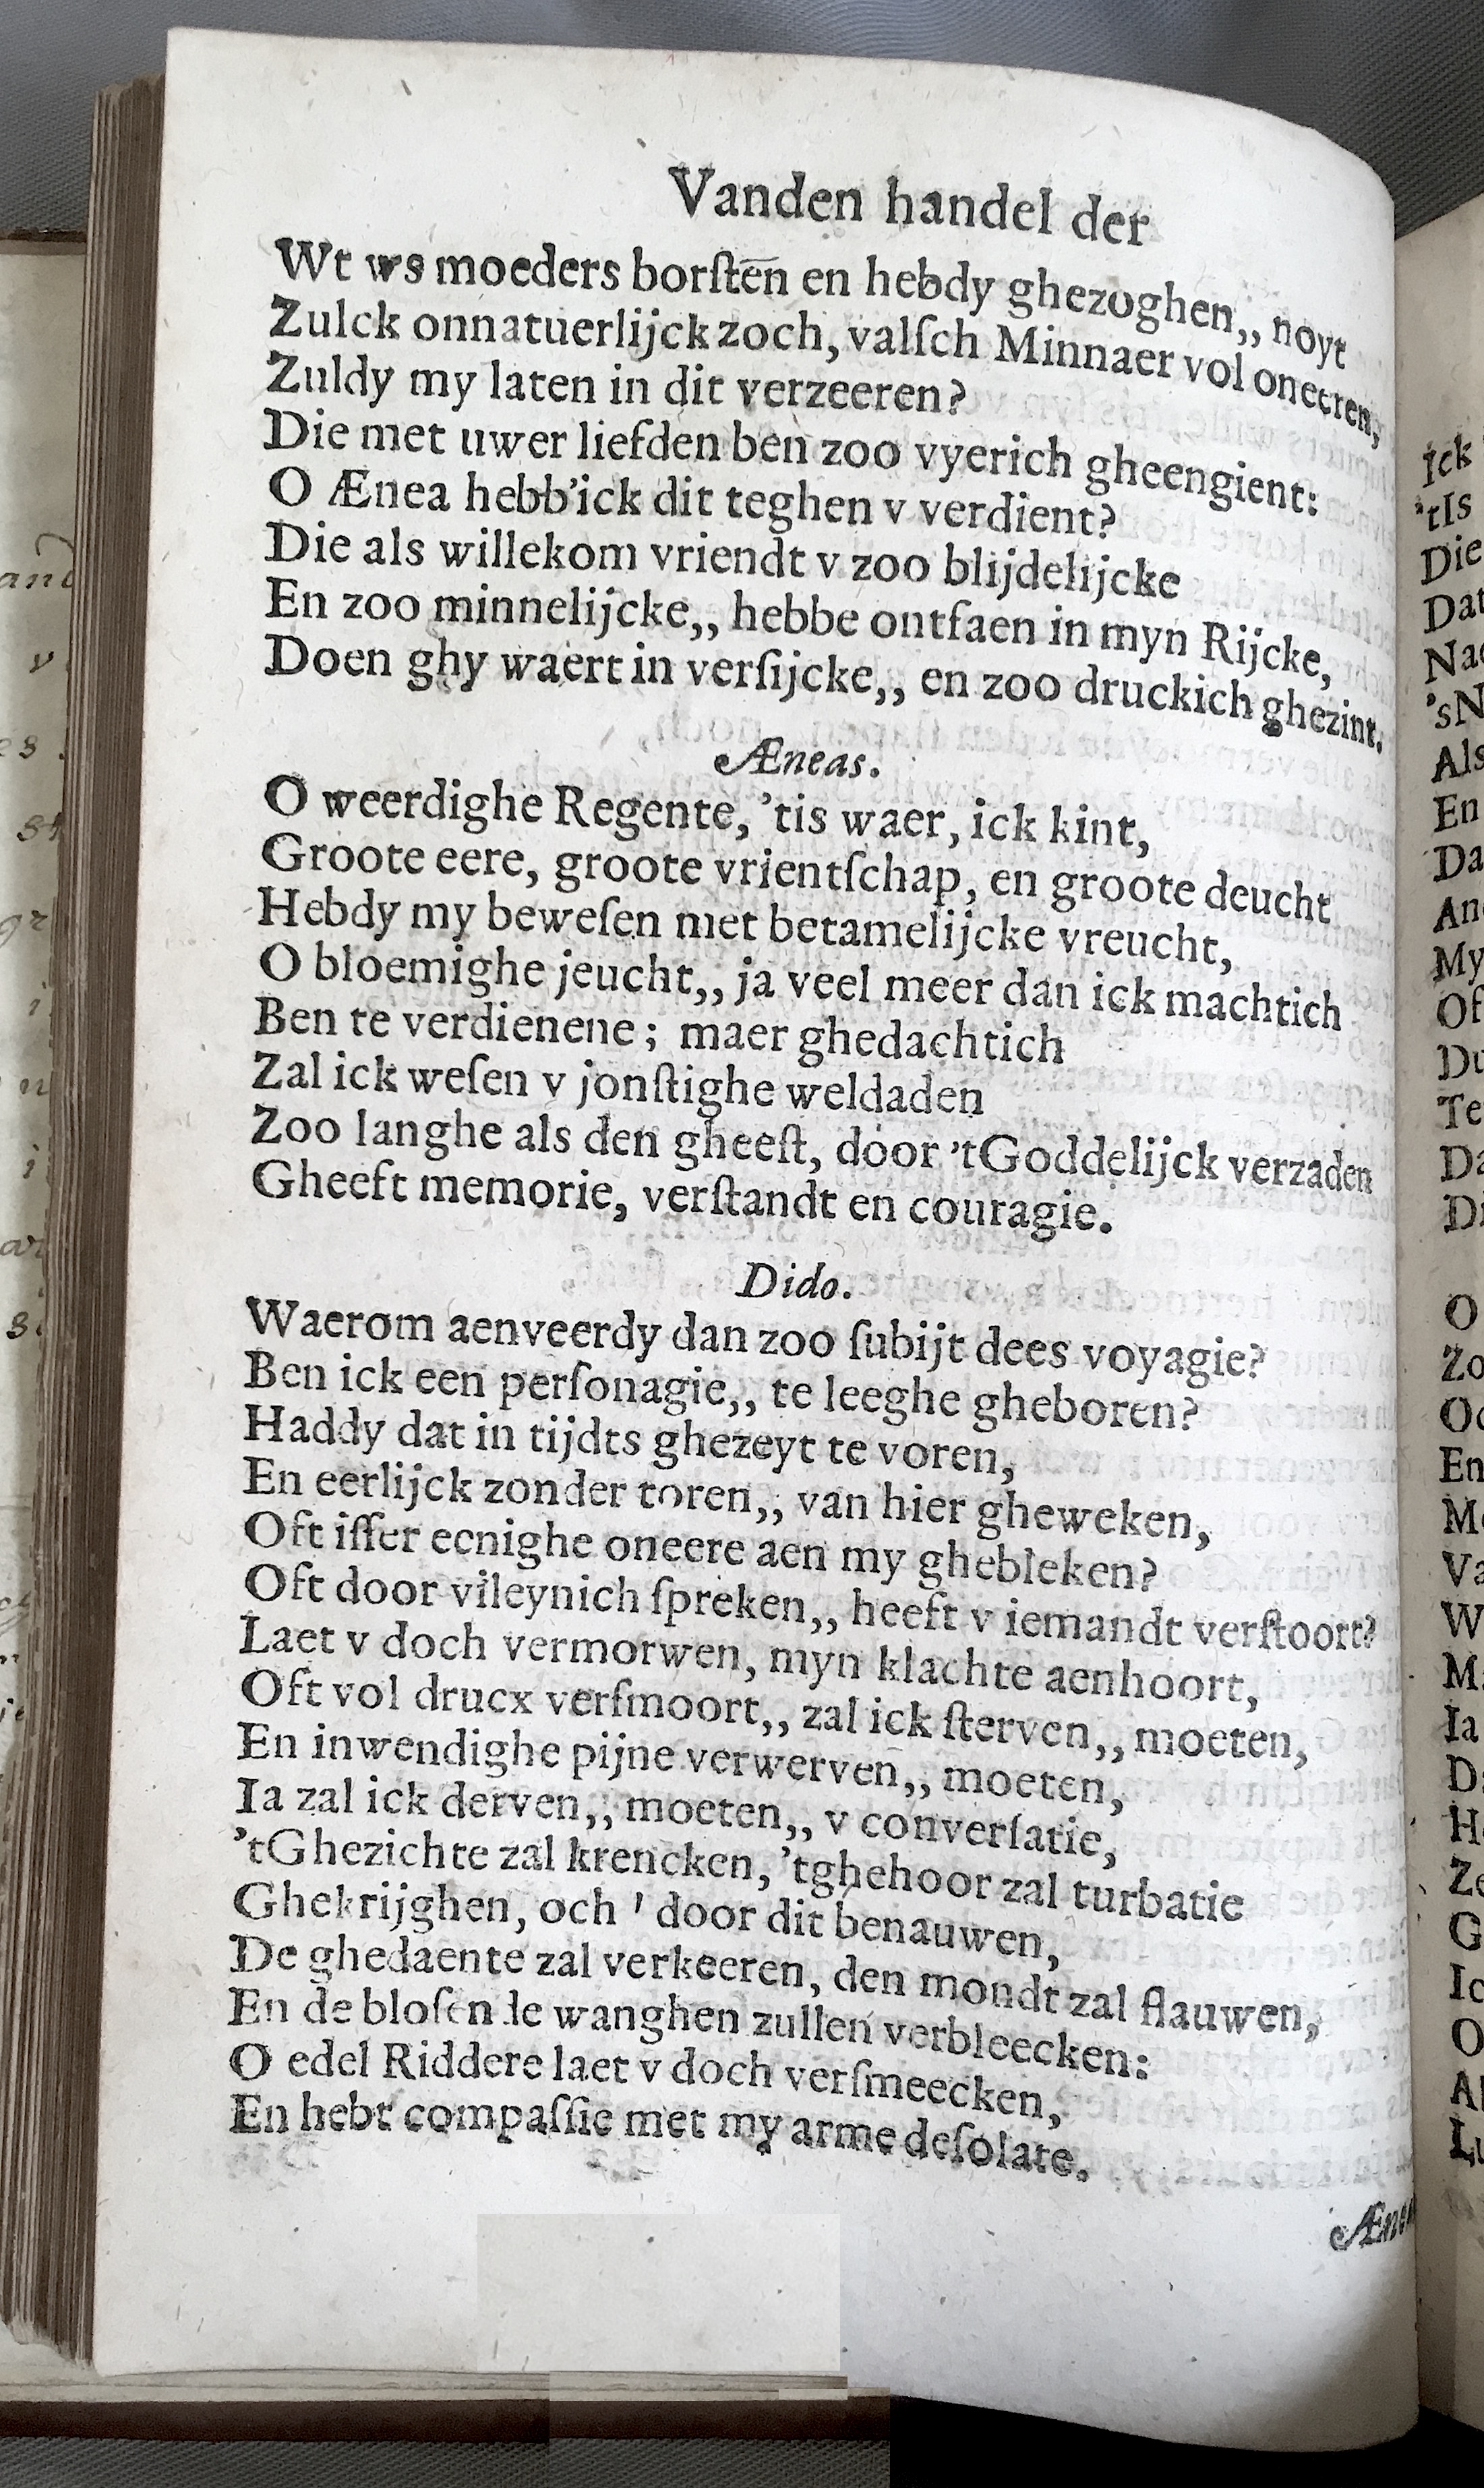 Vanden handel der
Wt ws moeders borstēn en hebdy ghezoghen,, noyt
Zulck onnatuerlijck zoch, valſch Minnaer vol oneeren,
Zuldy my laten in dit verzeeren?
Die met uwer liefden ben zoo vyerich gheengient:
O Ænea hebb'ick dit teghen v verdient?
Die als willekom vriendt v zoo blijdelijcke
En zoo minnelijcke,, hebbe ontfaen in myn Rijcke,
Doen ghy waert in verſijcke,, en zoo druckich ghezint.
Æneas.
O weerdighe Regente, 'tis waer, ick kint,
Groote eere, groote vrientſchap, en groote deucht
Hebdy my beweſen met betamelijcke vreucht,
O bloemighe jeucht,, ja veel meer dan ick machtich
Ben te verdienene; maer ghedachtich
Zal ick weſen v jonſtighe weldaden
Zoo langhe als den gheeſt, door 'tGoddelijck verzaden
Gheeft memorie, verſtandt en couragie.
Dido.
Waerom aenveerdy dan zoo ſubijt dees voyagie?
Ben ick een perſonagie,, te leeghe gheboren?
Haddy dat in tijdts ghezeyt te voren,
En eerlijck zonder toren,, van hier gheweken,
Oft iſſer eenighe oneere aen my ghebleken?
Oft door vileynich ſpreken,, heeft v iemandt verſtoort?
Laet v doch vermorwen, myn klachte aenhoort,
Oft vol drucx verſmoort,, zal ick ſterven,, moeten,
En inwendighe pijne verwerven,, moeten,
Ia zal ick derven,, moeten,, v converſatie,
'tGhezichte zal krencken, 'tghehoor zal turbatie
Ghekrijghen, och ! door dit benauwen,
De ghedaente zal verkeeren, den mondt zal flauwen,
En de bloſende wanghen zullen verbleecken:
O edel Riddere laet v doch verſmeecken,
En hebt compaſſie met my arme deſolate.
Ick
'tIs
Die
Dat
's
Als
En
My
Of
Te
O
En
Ia